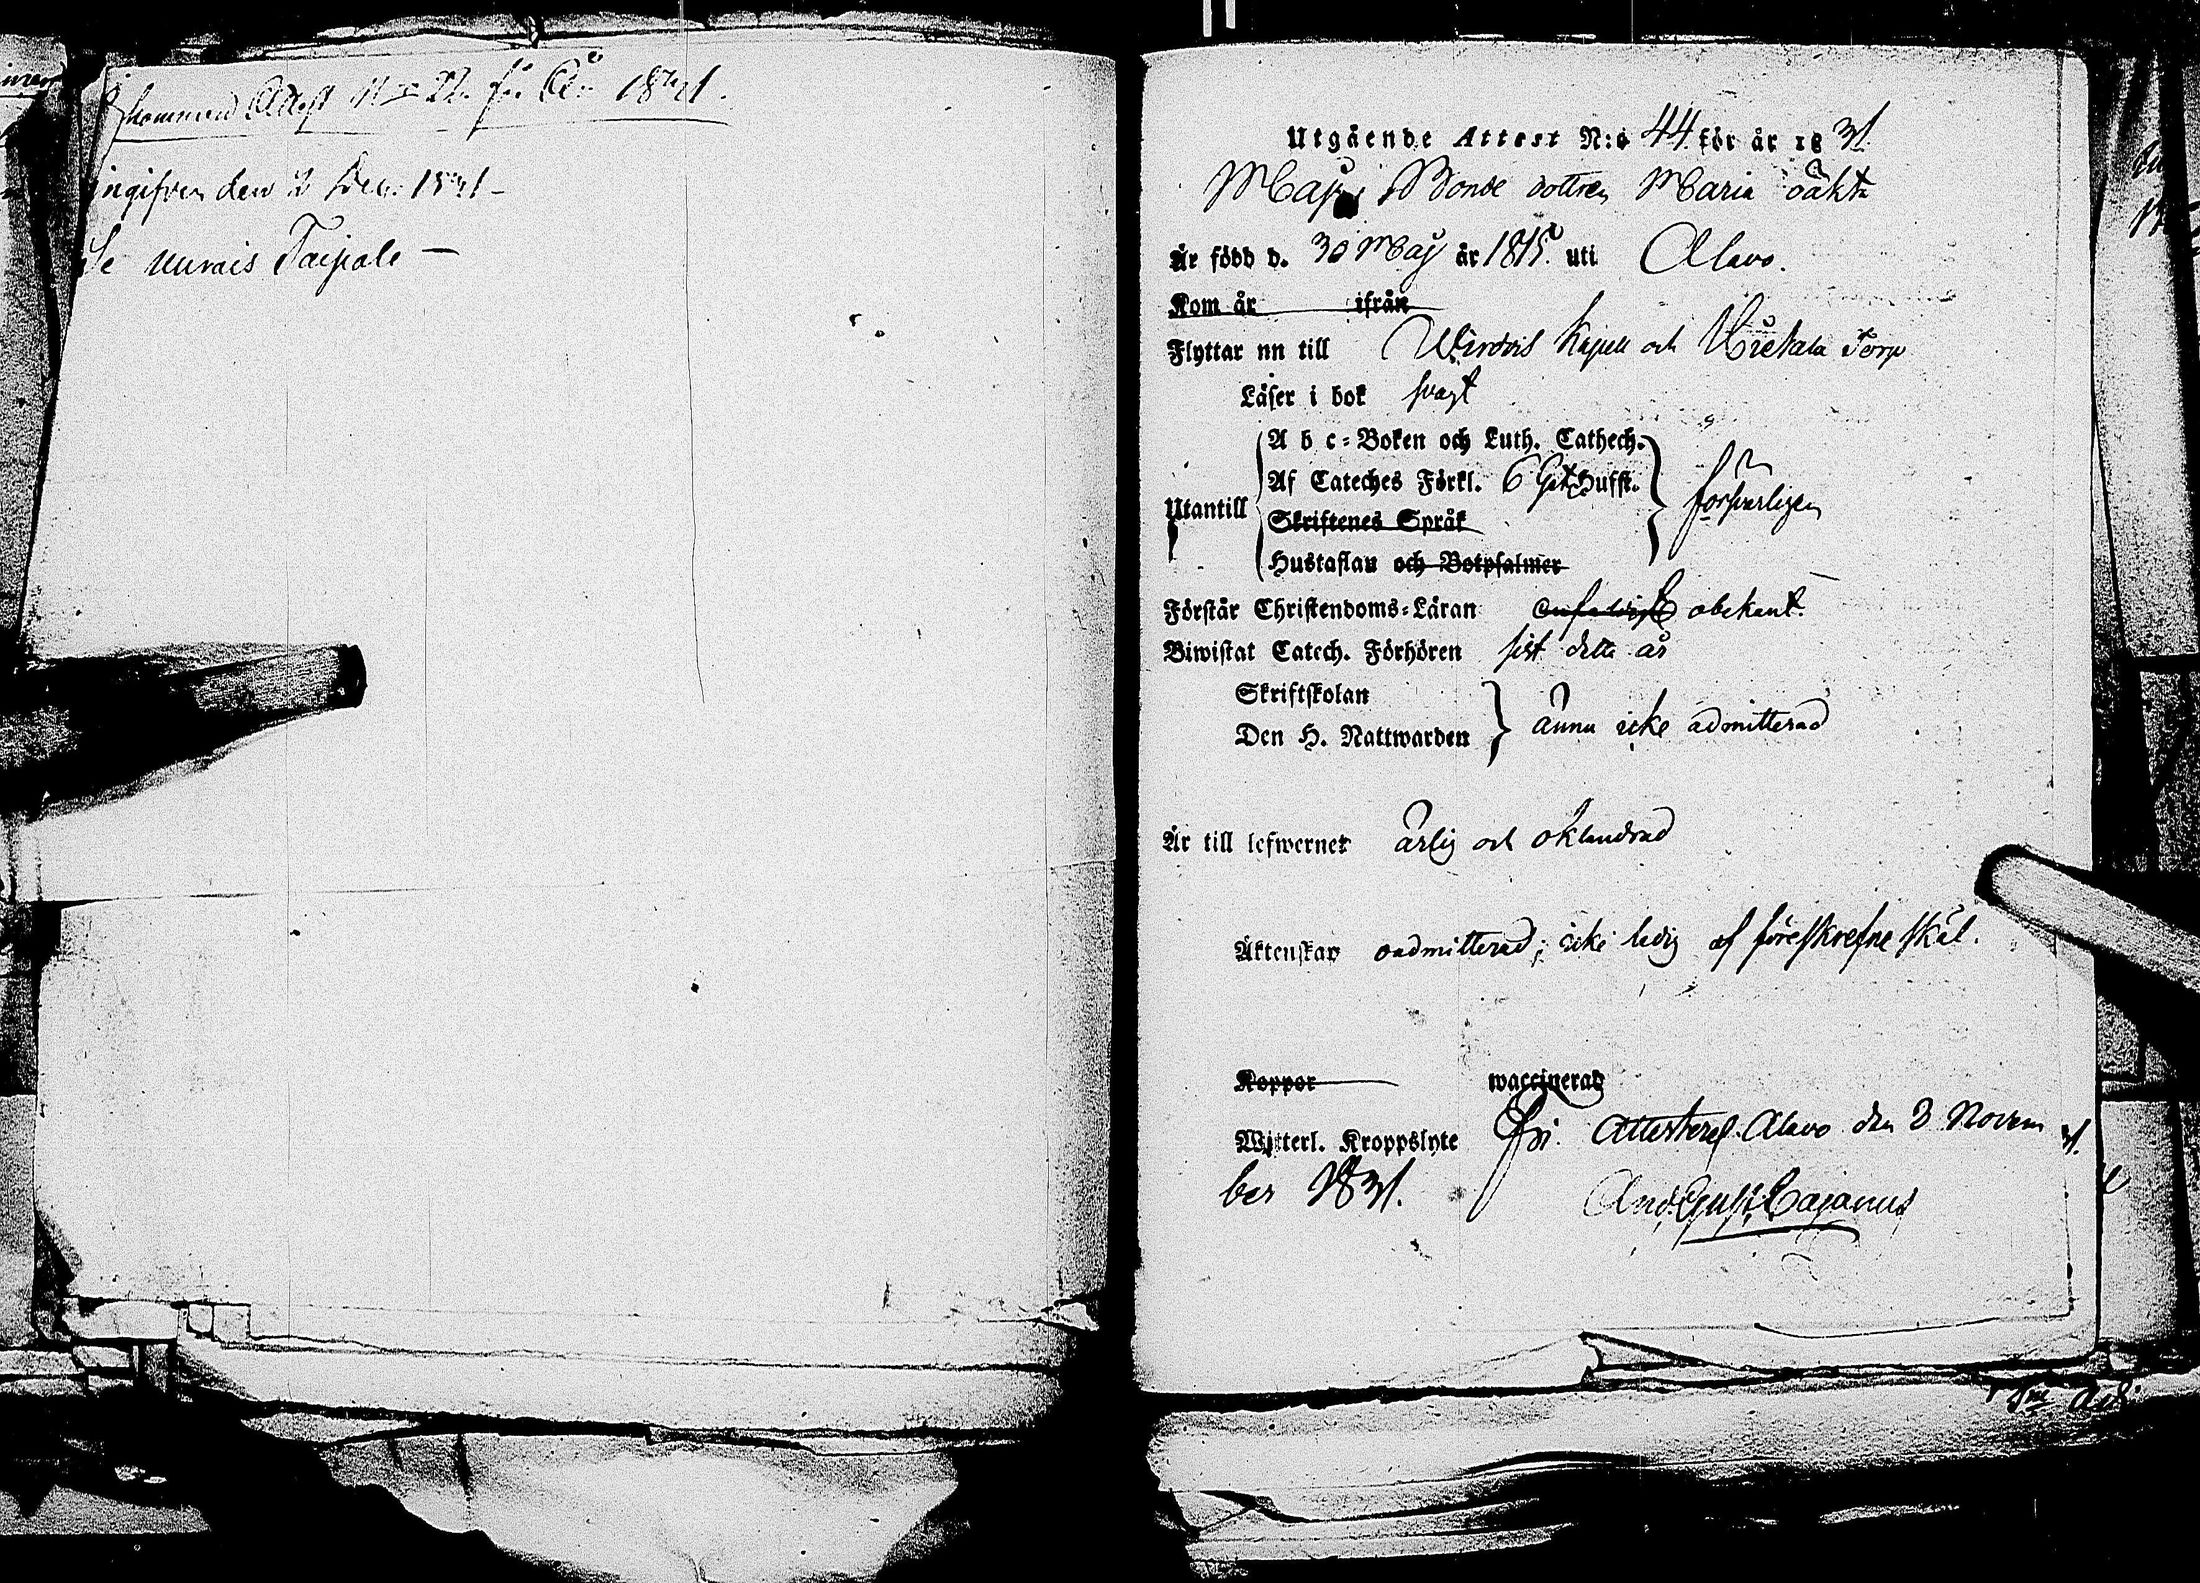 kommend Attest N:o 22. för År 1831.
ingifven den 2 Dec. 1831 –
Se Taipale –
Utgående Attest N:o 44 för år 1831.
Bonde dottren Maria oäkta
Är född d. 30 Maj år 1815. uti Alavo.
Kom år ifrån
Flyttar nu till Wirdois Kapell och Torp
Läser i bok svagt
A b c-Boken och Luth. Cathech.
Af Cateches Förkl. 6 Hufst.
Utantill försvarligen
Skriftenes Språk
Hustaflan och Botpsalmer
Förstår Christendoms-Läran enfaldigt obekant.
Biwistat Catech. Förhören sist detta år
Skriftskolan
Den H. Nattwarden ännu icke admitterad
Är till lefwernet ärlig och oklandrad
Äktenskap oadmitterad; icke ledig af föreskrefne skäl.
Koppor waccinerad
Witterl. Kroppslyte fri. Attesteras Alavo den 3 Novem
ber 1831.
And. Gust. Cajanus